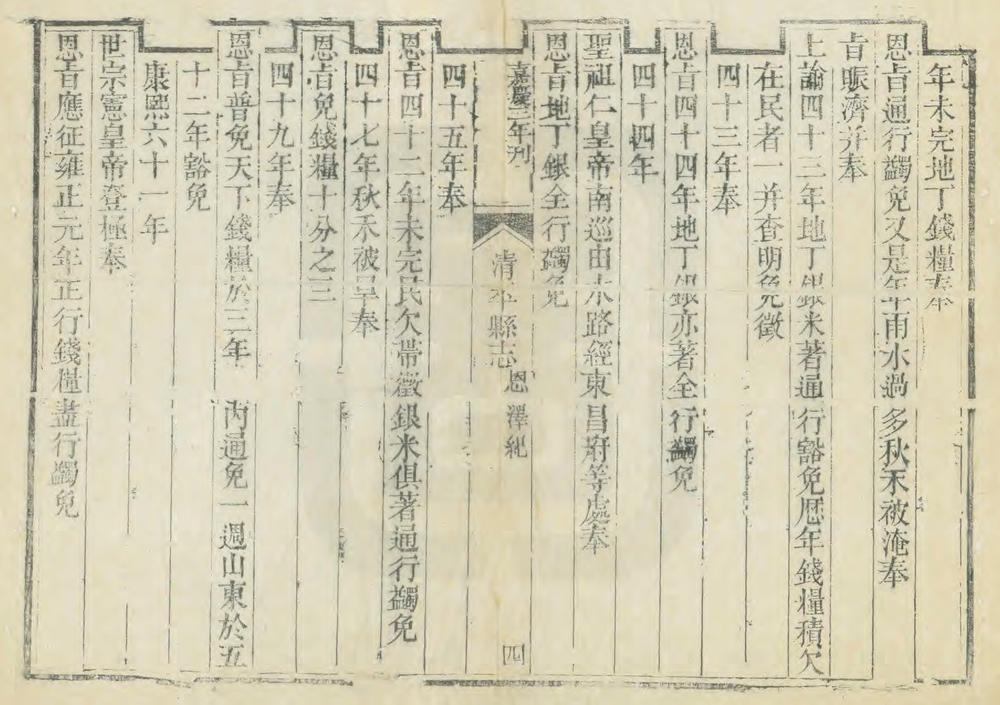 年未完地丁錢糧奉
恩旨通行蠲免又是年雨水過多秋禾被淹奉
旨賑濟并奉
上諭四十三年地丁銀米著通行豁免歷年錢糧積欠
在民者一并查明免徵
四十三年奉
恩旨四十四年地丁銀亦著全行蠲免
四十四年
聖祖仁皇帝南巡由水路經東昌府等處奉
恩旨地丁銀全行蠲免
嘉慶三年刋
清平縣志
恩澤紀
四
四十五年奉
恩旨四十二年未完民欠帶徵銀米俱著通行蠲免
四十七年秋禾被旱奉
恩旨免錢糧十分之三
四十九年奉
恩旨普免天下錢糧於三年內通免一週山東於五
十二年豁免
康熙六十一年
世宗憲皇帝登極奉
恩旨應征雍正元年正行錢糧盡行蠲免